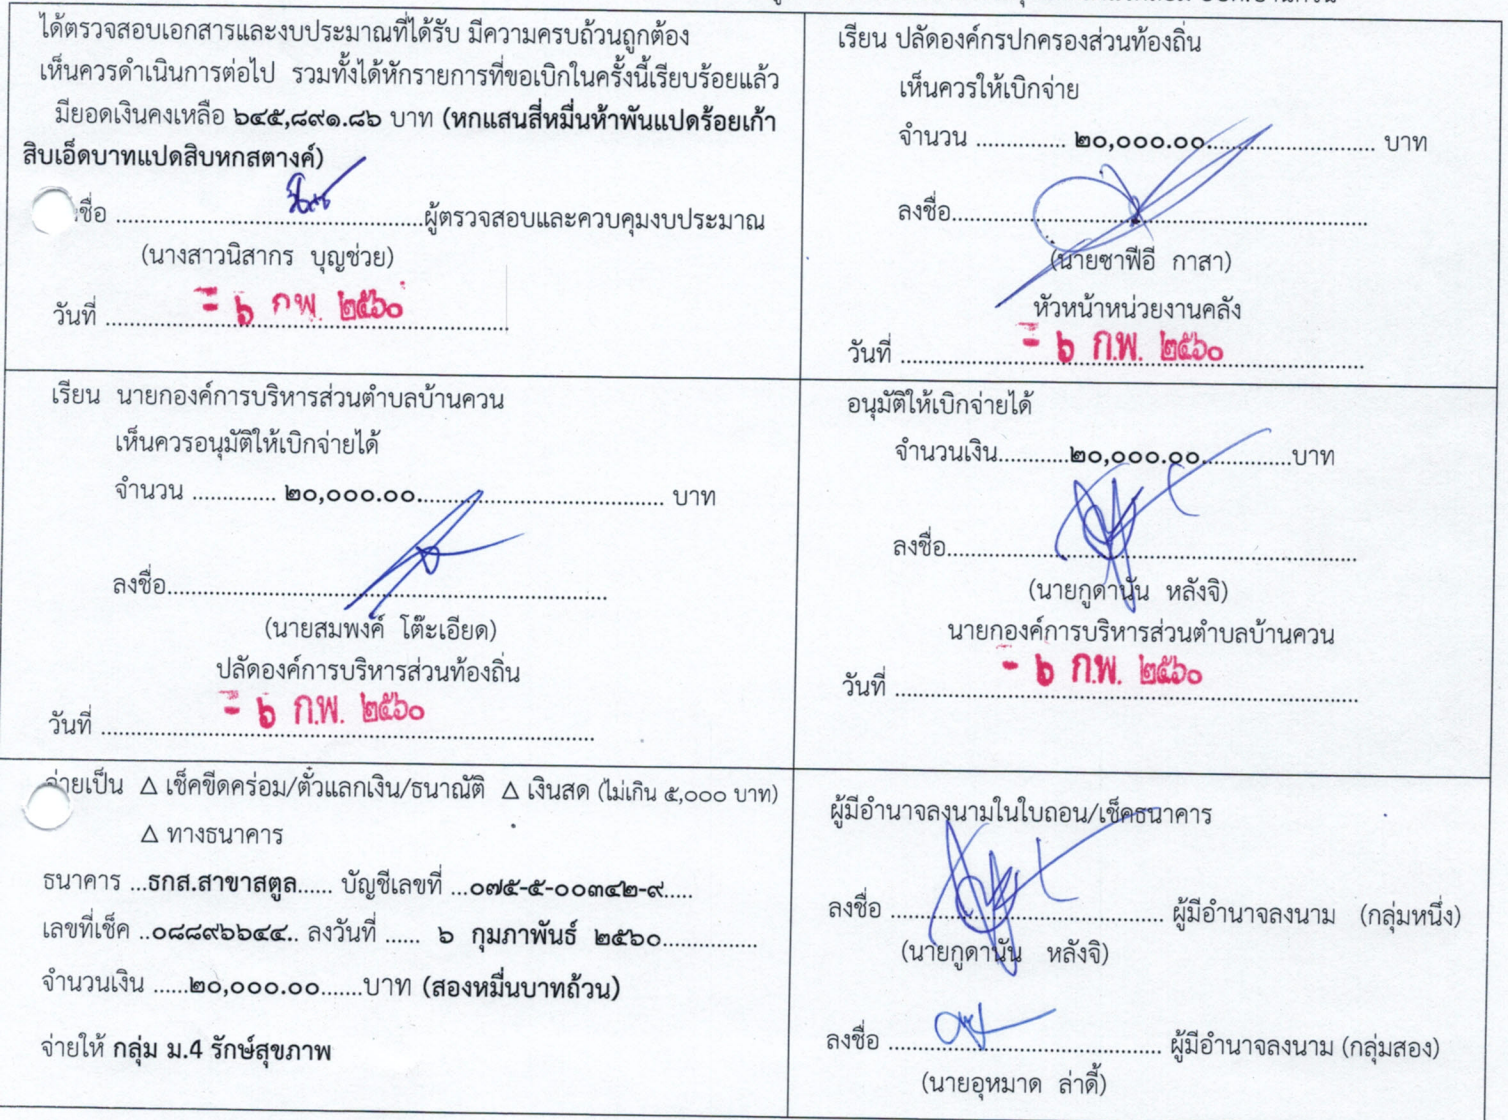 ได้ตรวจสอบเอกสารและงบประมาณที่ได้รับ มีความครบถ้วนถูกต้อง
เห็นควรดำเนินการต่อไป รวมทั้งได้หักรายการที่ขอเบิกในครั้งนี้เรียบร้อยแล้ว
มียอดเงินคงเหลือ ๖๔๕,๘๙๑.๘๖ บาท (หกแสนสี่หมื่นห้าพันแปดร้อยเก้า
สิบเอ็ดบาทแปดสิบหกสตางค์)
ลงชื่อ ........................................ผู้ตรวจสอบและควบคุมงบประมาณ
(นางสาวนิสากร บุญช่วย)
วันที่ - ๖ ก.พ. ๒๕๖๐
เรียน ปลัดองค์กรปกครองส่วนท้องถิ่น
เห็นควรให้เบิกจ่าย
จำนวน .............. ๒๐,๐๐๐.๐๐.......................... บาท
ลงชื่อ..............................................................
(นายซาฟีอี กาสา)
หัวหน้าหน่วยงานคลัง
วันที่ - ๖ ก.พ. ๒๕๖๐
เรียน นายกองค์การบริหารส่วนตำบลบ้านควน
เห็นควรอนุมัติให้เบิกจ่ายได้
จำนวน ............. ๒๐,๐๐๐.๐๐...................................... บาท
ลงชื่อ..................................................................
(นายสมพงค์ โต๊ะเอียด)
ปลัดองค์การบริหารส่วนท้องถิ่น
วันที่ - ๖ ก.พ. ๒๕๖๐
อนุมัติให้เบิกจ่ายได้
จำนวนเงิน...........๒๐,๐๐๐.๐๐..............บาท
ลงชื่อ..............................................................
(นายกูดานัน หลังจิ)
นายกองค์การบริหารส่วนตำบลบ้านควน
วันที่ - ๖ ก.พ. ๒๕๖๐
จ่ายเป็น △ เช็คขีดคร่อม/ตั๋วแลกเงิน/ธนาณัติ △ เงินสด (ไม่เกิน ๕,๐๐๐ บาท)
△ ทางธนาคาร
ธนาคาร ...ธกส.สาขาสตูล...... บัญชีเลขที่ ...๐๗๕-๕-๐๐๓๔๒-๙.....
เลขที่เช็ค ..๐๘๘๙๖๖๔๔.. ลงวันที่ ...... ๖ กุมภาพันธ์ ๒๕๖๐...............
จำนวนเงิน ......๒๐,๐๐๐.๐๐.......บาท (สองหมื่นบาทถ้วน)
จ่ายให้ กลุ่ม ม.4 รักษ์สุขภาพ
ผู้มีอำนาจลงนามในใบถอน/เช็คธนาคาร
ลงชื่อ ......................................... ผู้มีอำนาจลงนาม (กลุ่มหนึ่ง)
(นายกูดานัน หลังจิ)
ลงชื่อ ......................................... ผู้มีอำนาจลงนาม (กลุ่มสอง)
(นายอุหมาด ล่าดี้)